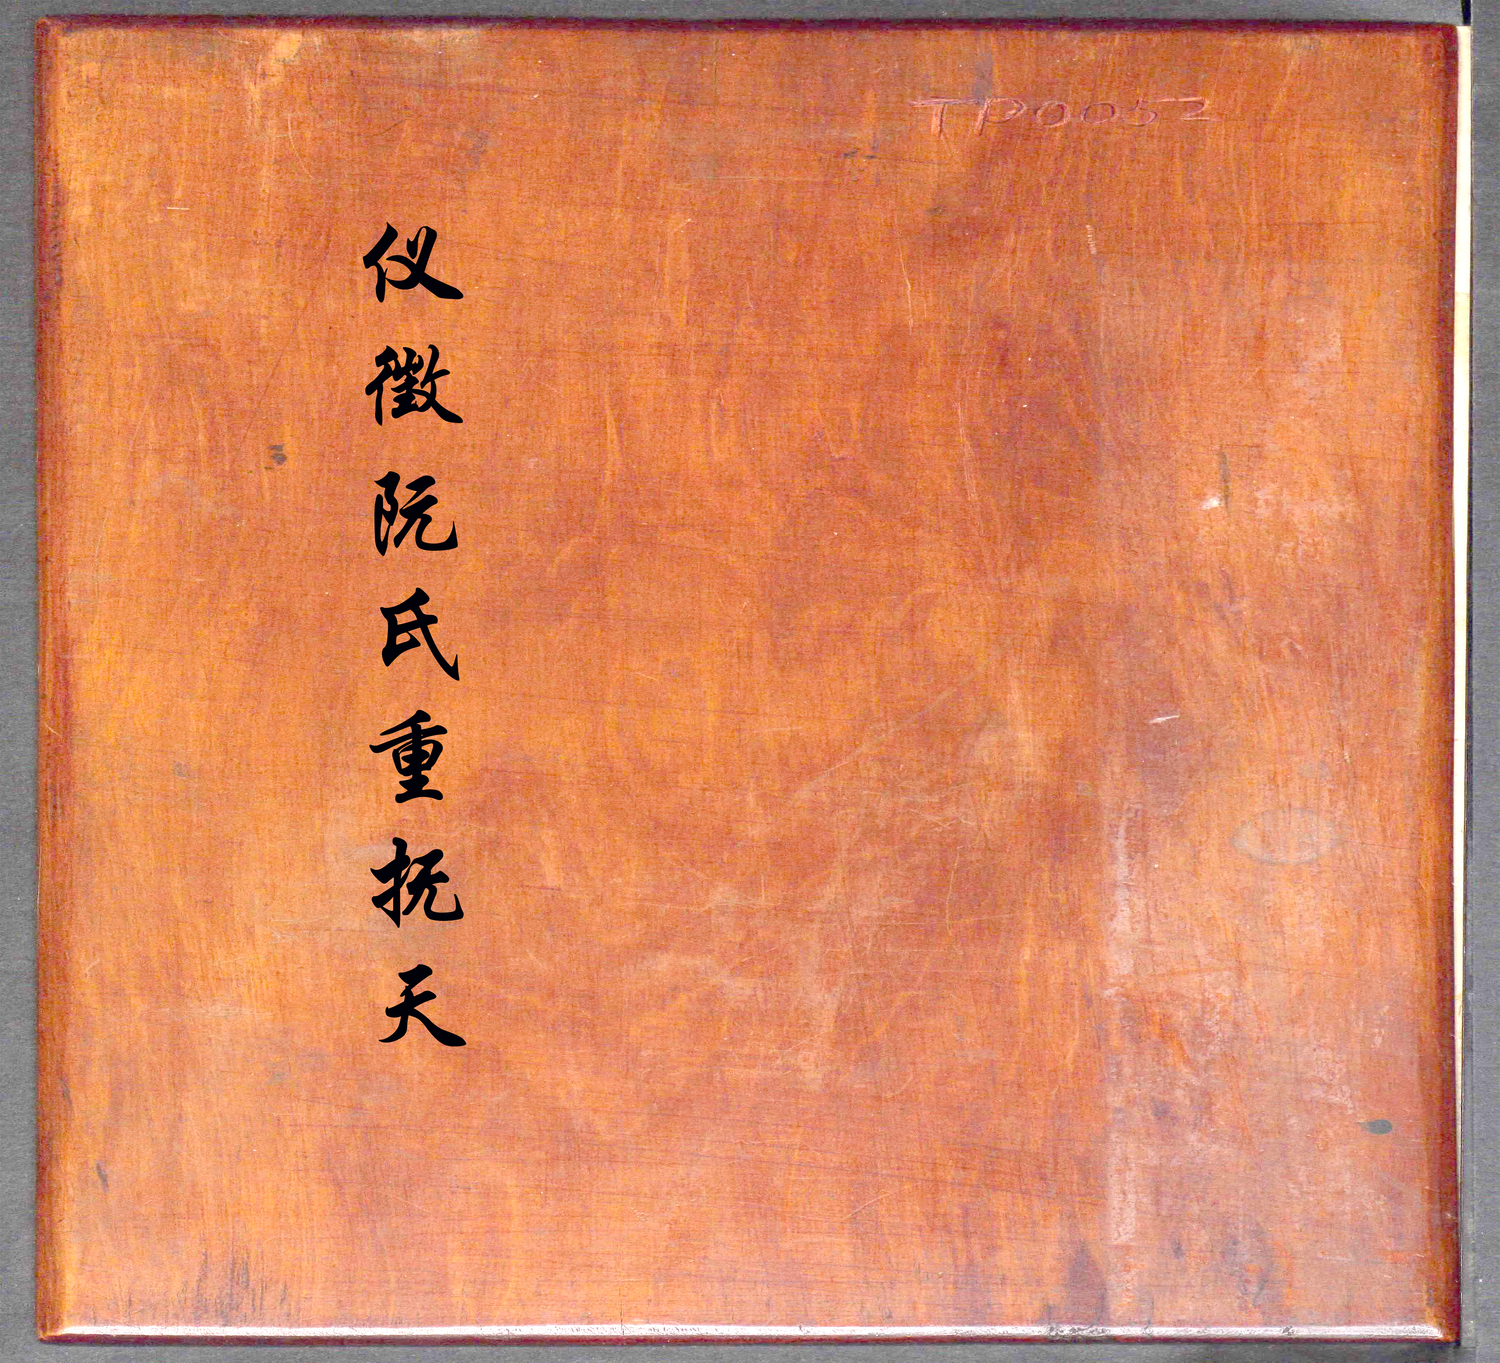 TP0052
仪徵阮氏重抚天